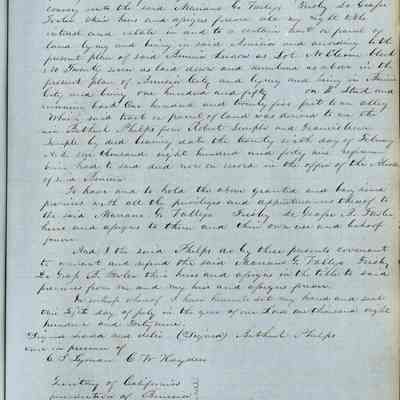 convey unto the said Mariano G. Vallejo Frisby De Graff
Foster their heirs and assigns forever all my right title
interest and estate in and to a certain tract or parcel of
land lying and being in said Benicia and according to the
present plan of said Benicia known as Lot No Eleven Block
No Twenty seven as laid down and numbered as above in the
present plan of Benicia City and lying and being in Benicia
City and being one hundred and fifty on D Street and
running back One hundred and twenty five feet to an alley
Which said tract or parcel of land was deeded to me the
said Bethuel Phelps from Robert Semple and Frances Ann
Semple by deed bearing date the twenty sixth day of February
A.D. one thousand eight hundred and forty nine reference
being had to said deed now on record in the office of the Alcalde
of said Benicia
To have and to hold the above granted and bargained
premises with all the privileges and appurtenances thereof to
the said Mariano G. Vallejo Frisby De Graff A. Foster
heirs and assigns to them and their own use and behoof
forever
And I the said Phelps do by these presents covenant
to warrant and defend the said Mariano G. Vallejo Frisby
De Graff A. Foster their heirs and assigns in the title to said
premises from me and my heirs and assigns forever
In witness whereof I have hereunto set my hand and seal
this day of July in the year of our Lord one thousand eight
hundred and forty nine
Signed sealed and (Signed) Bethuel Phelps
in presence of
C. S. Lyman C W Hayden
Territory of California
jurisdiction of Benicia